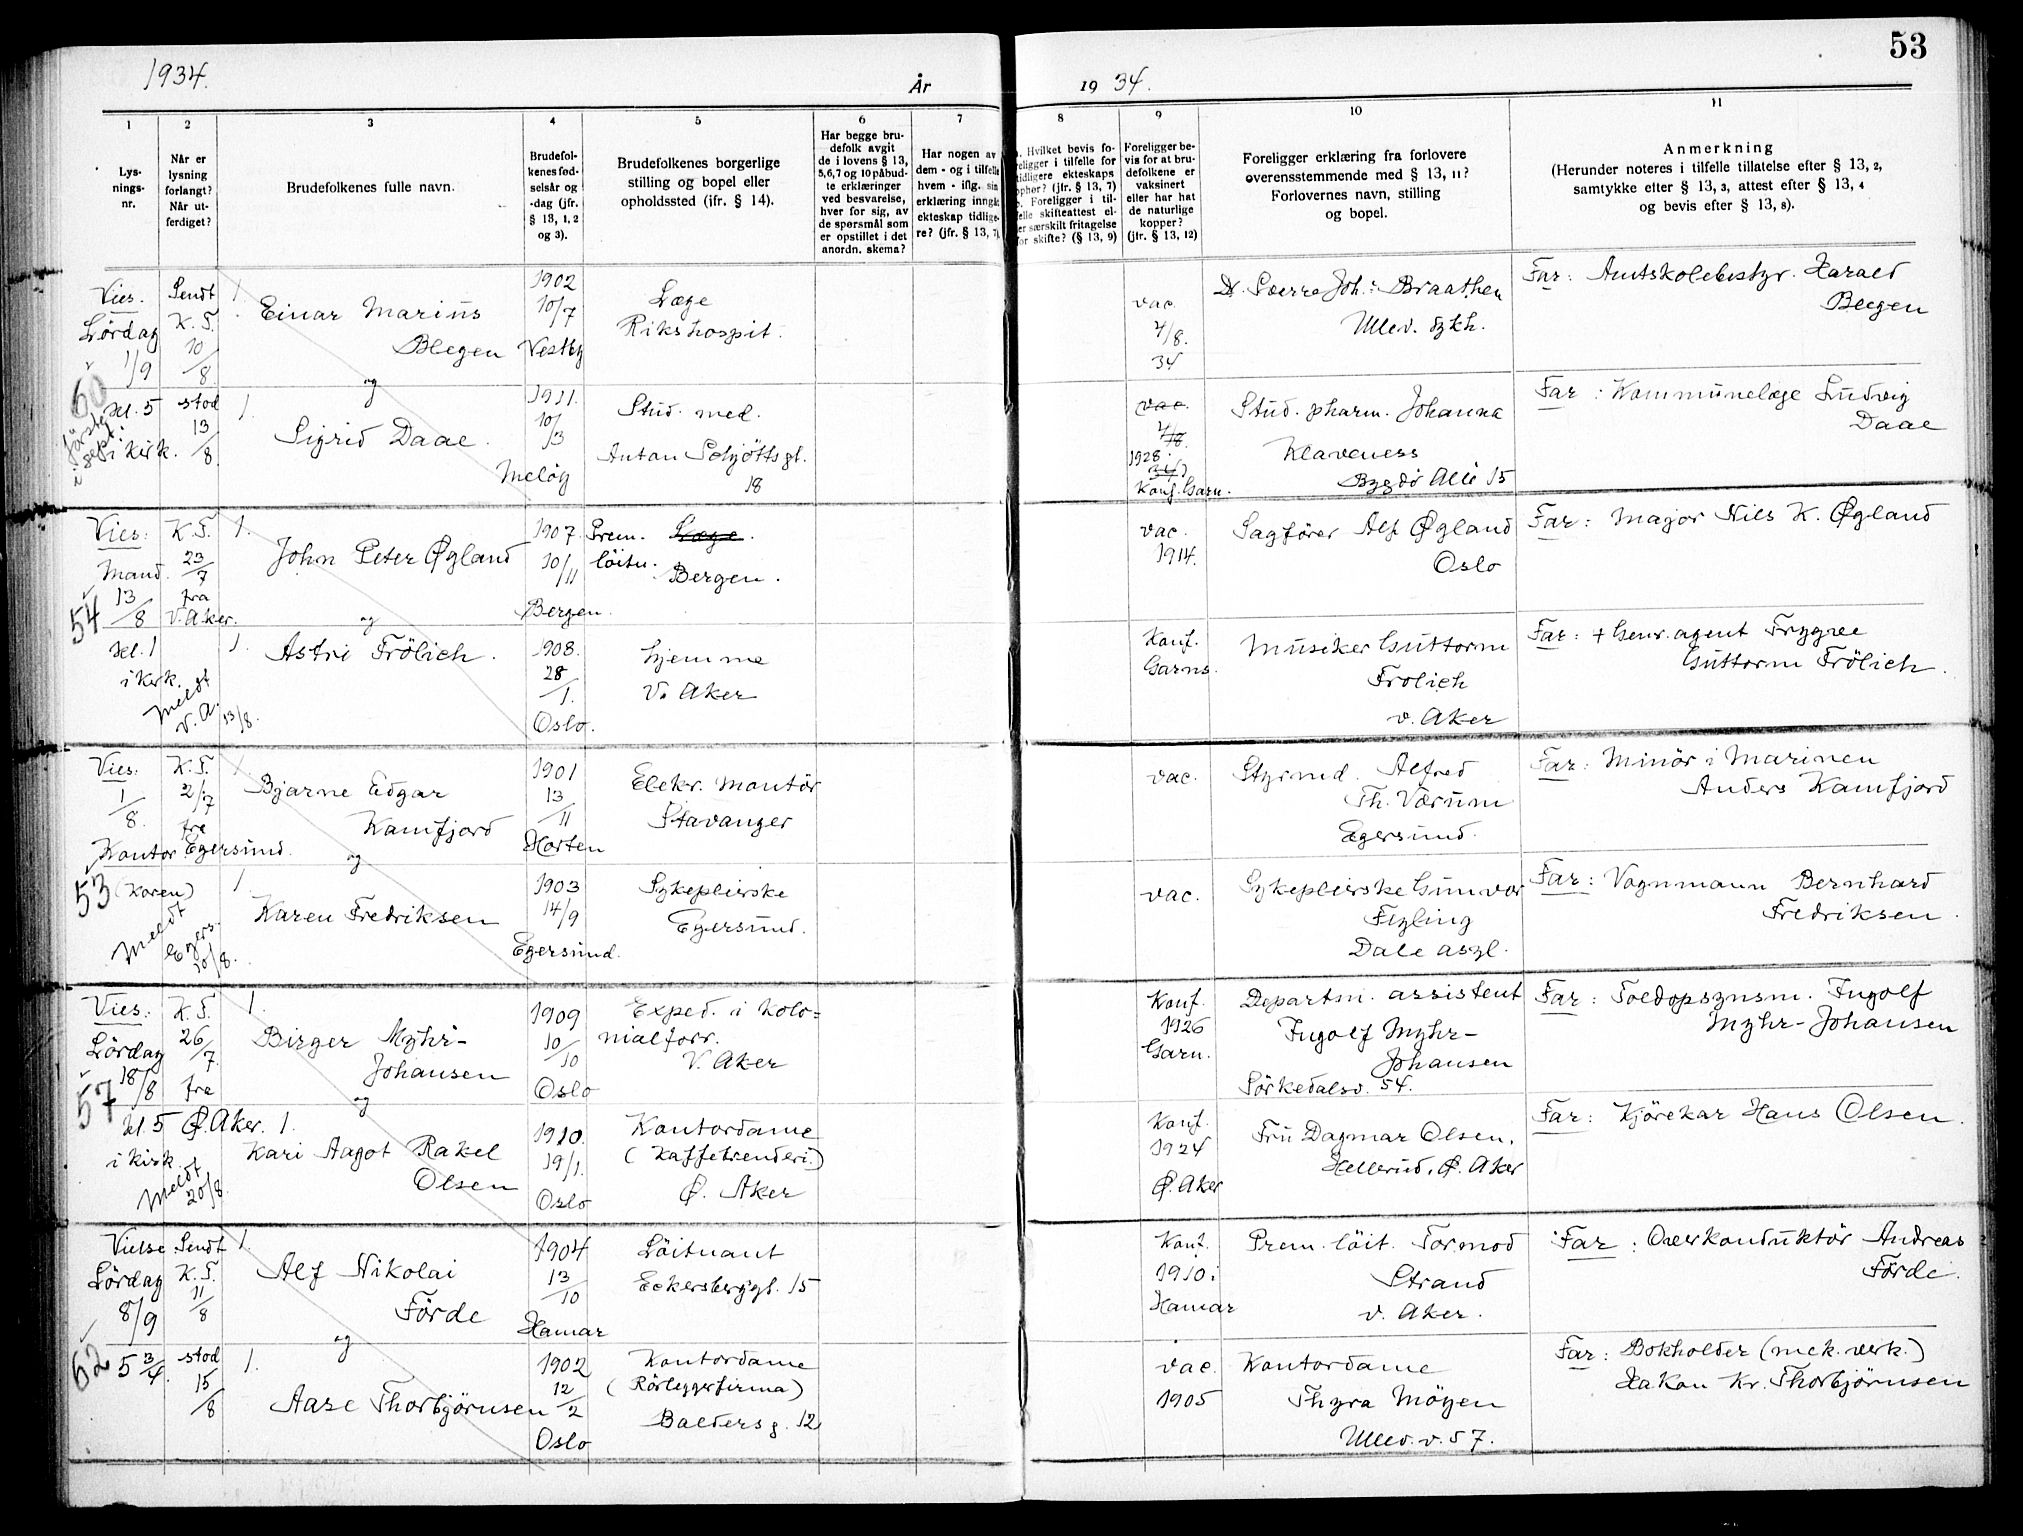 53
1934.
År
19 34.
1
2
3
4
5
6
7
8
9
10
11
Lys-
nings-
nr.
Når er
lysning
forlangt?
Når ut-
ferdiget?
Brudefolkenes fulle navn.
Brudefol-
kenes fød-
selsår og
-dag (jfr.
§ 13, 1, 2
og 3).
Brudefolkenes borgerlige
stilling og bopel eller
opholdssted (jfr. § 14).
Har begge bru-
defolk avgit
de i lovens § 13,
5,6,7 og 10 påbud-
te erklæringer
ved besvarelse,
hver for sig, av
de spørsmål som
er opstillet i det
anordn. skema?
Har nogen av
dem - og i tilfelle
hvem - iflg. sin
erklæring inngåt
ekteskap tidlige-
re? (jfr. § 13, 7)
Hvilket bevis fo-
religger i tilfelle for
tidligere ekteskaps
ophør? (jfr. § 13, 7)
Foreligger i til-
felle skifteattest el-
ler særskilt fritagelse
for skifte? (§ 13, 9)
Foreligger be-
vis for at bru-
defolkene er
vaksinert
eller har hat
de naturlige
kopper?
(jfr. § 13, 12)
Foreligger erklæring fra forlovere
overensstemmende med § 13, 11?
Forlovernes navn, stilling
og bopel.
Anmerkning
(Herunder noteres i tilfelle tillatelse efter § 13, 2,
samtykke efter § 13, 3, attest efter § 13, 4
og bevis efter § 13, 8).
Vies.
Lördag
1/9
60
kl. 5
i kirk.
første
i sept.
Sendt
K. T.
10/8
stod
13/8.
1.
Einar Marius
Blegen
og
1.
Sigrid Daae.
1902
10/7
Vestby
1911.
10/3
Meløy
Læge
Rikshospit.
Stud. med.
Anton Schjöttsgt.
18
vac.
4/8.
34
vac.
4/8.
1928.
34
Konf. Garn.
Dr. Sverre Joh.s Braathen
Ullev. sykh.
Stud. pharm. Johanna
Klaveness
Bygdö Allé 15
Far: Amtskolebestyr. Harald
Blegen
Far: Kommunelæge Ludvig
Daae
Vies:
Mand.
13/8
54
kl. 1
i kirk.
Meldt
V. A. 13/8.
K. T.
23/7
fra
V. Aker.
1.
John Peter Øgland
og
1.
Astri Frölich.
1907
10/11
Bergen.
1908.
28/1.
Oslo.
Prem. Læge.
löitn.
Bergen.
hjemme
V. Aker
vac.
1914.
Konf.
Garns.
Sagfører Alf Øgland
Oslo
Musiker Guttorm
Frölich
v. Aker
Far: Major Nils K. Øgland
Far: + Genr. agent Trygve
Guttorm Frölich.
Vies:
1/8.
Kontor
53 (Koren)
Meldt
Egers.
20/8.
K. T.
21/7
fra
Egersund.
1
Bjarne Edgar
Kamfjord
og
1
Karen Fredriksen
1901
13/11
Horten
1903
14/9
Egersund.
Elekr. montör
Stavanger
Sykepleierske
Egersund.
vac.
vac.
Styrmd. Alfred
Th. Værum
Egersund.
Sykepleierske Gunvor
Flyling
Dale asyl.
Far: Minör i Marinen
Anders Kamfjord
Far: Vognmann Bernhard
Fredriksen.
Vies:
Lördag
18/8
57
kl. 5
i kirk.
Meldt
20/8.
K. T.
26/7.
fra
Ø. Aker.
1.
Birger Myhr-
Johansen
og
1.
Kari Aagot Rakel
Olsen
1909
10/10
Oslo
1910.
19/1.
Oslo
Exped. i kolo=
nialforr.
V. Aker
Kontordame
(Kaffebrenderi.)
Ø. Aker
Konf.
1926
Garn.
Konf.
1924
Ø. Aker
Departm. assistent
Ingolf Myhr-
Johansen
Sörkedalsv. 54.
Fru Dagmar Olsen,
Hellerud, Ø. Aker
Far: Toldopsynsm. Ingolf
Myhr-Johansen
Far: Kjörekar Hans Olsen.
Vielse
Lördag
8/9
62
5 3/4.
Sendt
K. T.
11/8
stod
15/8
1
Alf Nikolai
Förde
og
1.
Aase Thorbjørnsen
1904
13/10
Hamar
1902
12/2
Oslo
Löitnant
Eckersberggt. 15
Kontordame
(Rörleggerfirma)
Baldersg. 12
Konf.
1910 i
Hamar
vac.
1905
Prem. löit. Tormod
Strand
v. Aker.
Kontordame
Thyra Möyen
Ullev. v. 57.
Far: Overkonduktør Andreas
Förde.
Far: Bokholder (mek. verk.)
Hakon Kr. Thorbjørnsen